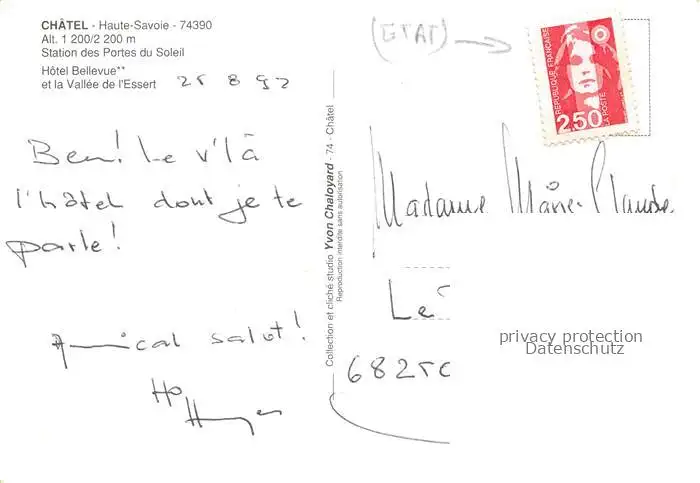 CHÂTEL - Haute-Savoie - 74390
Alt. 1 200/2 200 m
Station des Portes du Soleil
Hôtel Bellevue**
et la Vallée de l'Essert
25 8 92
Ben! Le v'là
l'hôtel dont je te
parle!
Amical salut!
Collection et cliché studio Yvon Chaloyard - 74 - Châtel
Reproduction interdite sans autorisation
(ETAT)
RÉPUBLIQUE FRANÇAISE
LA POSTE
2,50
Madame Marie-Claude
Le
68250
privacy protection
Datenschutz